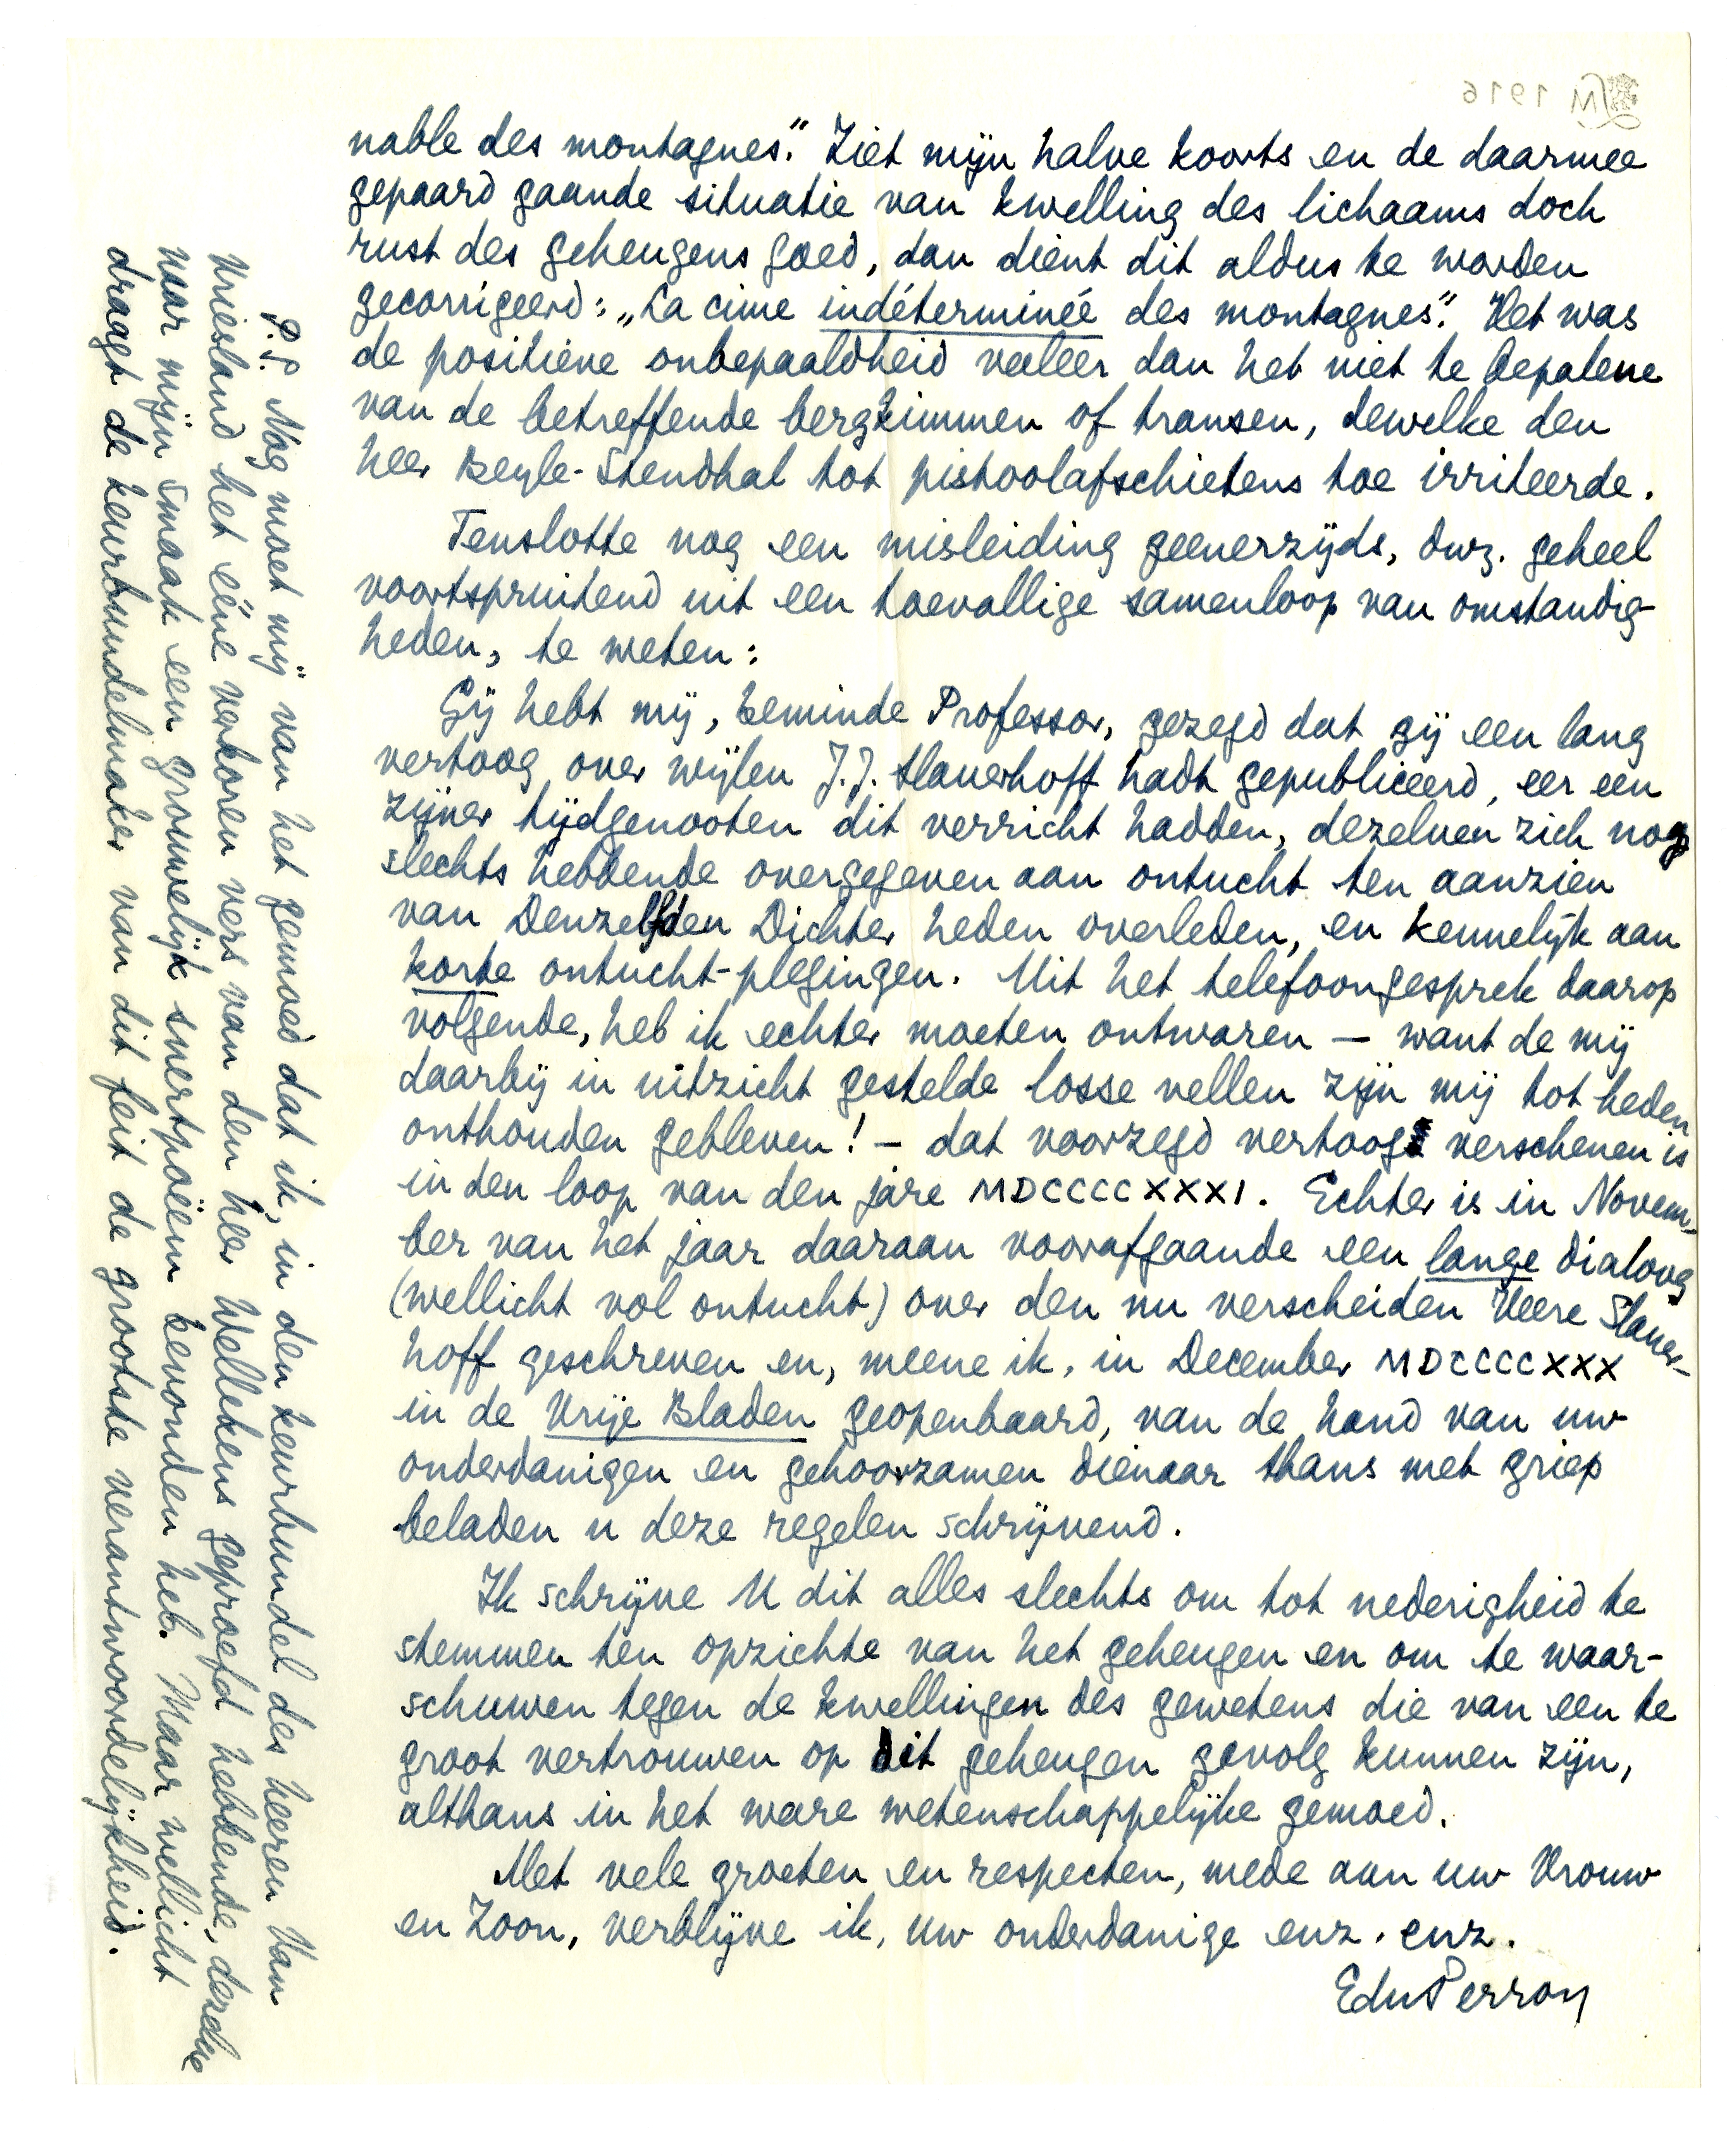 nable des montagnes." Ziet mijn halve koorts en de daarmee
gepaard gaande situatie van kwelling des lichaams doch
rust des geheugens goed, dan dient dit aldus te worden
gecorrigeerd: „La cime indéterminée des montagnes." Het was
de positieve onbepaaldheid veeleer dan het niet te bepalene
van de betreffende bergkimmen of transen, dewelke den
heer Beyle-Stendhal tot pistoolafschietens toe irriteerde.
Tenslotte nog een misleiding geenerzijds, dwz. geheel
voortspruitend uit een toevallige samenloop van omstandig-
heden, te weten:
Gij hebt mij, beminde Professor, gezegd dat gij een lang
vertoog over wijlen J.J. Slauerhoff hadt gepubliceerd, eer een
zijner tijdgenooten dit verricht hadden, dezelven zich nog
slechts hebbende overgegeven aan ontucht ten aanzien
van Denzelfden Dichter heden overleden, en kennelijk aan
korte ontucht-plegingen. Uit het telefoongesprek daarop
volgende, heb ik echter moeten ontwaren — want de mij
daarbij in uitzicht gestelde losse vellen zijn mij tot heden
onthouden gebleven! — dat voorzegd vertoog verschenen is
in den loop van den jare MDCCCCXXXI. Echter is in Novem-
ber van het jaar daaraan voorafgaande een lange dialoog
(wellicht vol ontucht) over den nu verscheiden Heere Slauer-
hoff geschreven en, meene ik, in December MDCCCCXXX
in de Vrije Bladen geopenbaard, van de hand van uw
onderdanigen en gehoorzamen dienaar thans met griep
beladen u deze regelen schrijvend.
Ik schrijve U dit alles slechts om tot nederigheid te
stemmen ten opzichte van het geheugen en om te waar-
schuwen tegen de kwellingen des gewetens die van een te
groot vertrouwen op dit geheugen gevolg kunnen zijn,
althans in het ware wetenschappelijke gemoed.
Met vele groeten en respecten, mede aan uw Vrouw
en Zoon, verblijve ik, uw onderdanige enz. enz.
EduPerron
P.S. Nog moet mij van het gemoed dat ik, in den keurbundel des heeren Van
Vriesland het ééne verkoren vers van den heer Wellekens geproefd hebbende, dezelve
naar mijn smaak een grouwelijk snertpoëem bevonden heb. Maar wellicht
draagt de keurbundelmaker van dit feit de grootste verantwoordelijkheid.
LM 1916